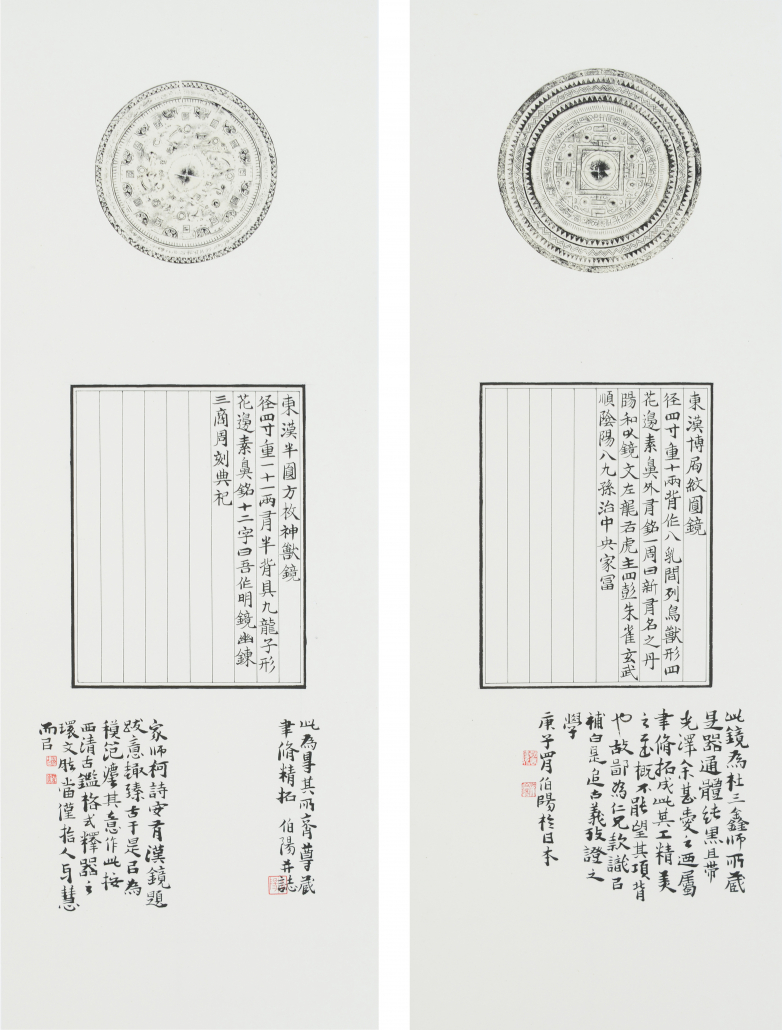 東漢博局紋圓鏡
径四寸重十兩背作八乳間列鳥獸形四
花邊素鼻外有銘一周曰新有名之丹
陽和以鏡文左龍右虎主四彭朱雀玄武
順陰陽八九孫治中央家冨
此鏡為杜三鑫師所藏
是器通體純黑且帶
光澤余甚愛之迺屬
聿脩拓成此其工精美
之至概不能望其項背
也故鄙為仁兄款識以
補白是追古義攷證之
學
庚子四月伯陽於日本
東漢半圓方枚神獸鏡
径四寸重一十一兩有半背具九龍子形
花邊素鼻銘十二字曰吾作明鏡幽鍊
三商周刻典祀
此為尋其所齋尊藏
聿脩精拓 伯陽并誌
家師柯詩安有漢鏡題
跋意趣臻古于是以為
模笵其意作此按
西清古鑑格式釋器之
環文當僅拾人牙慧
而已